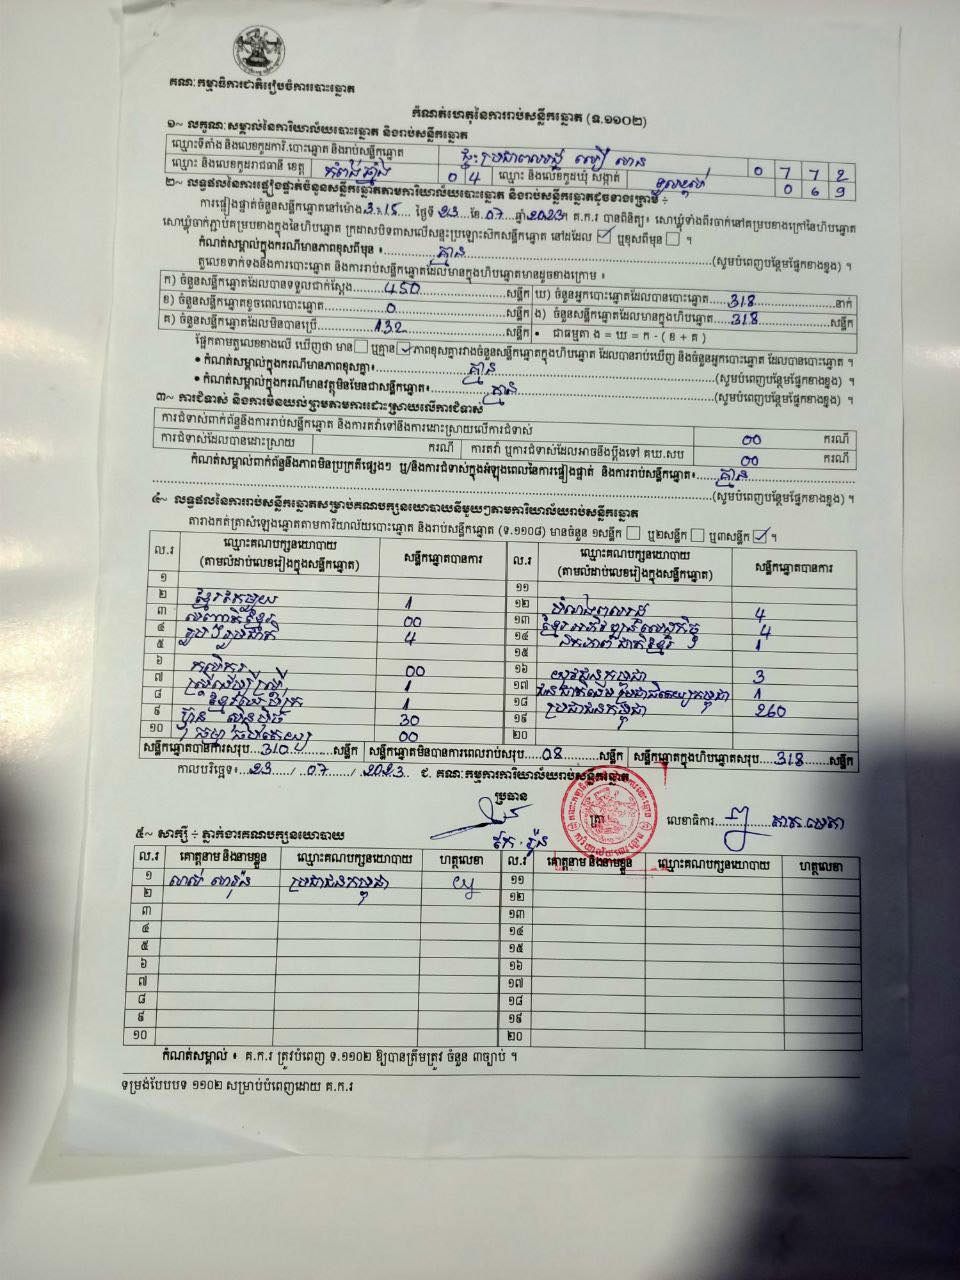 គណៈកម្មាធិការជាតិរៀបចំការបោះឆ្នោត
កំណត់ហេតុនៃការរាប់សន្លឹកឆ្នោត (ទ.១១០២)
១~ លក្ខណៈសម្គាល់នៃការិយាល័យបោះឆ្នោត និងរាប់សន្លឹកឆ្នោត
ឈ្មោះទីតាំង និងលេខកូដការិ.បោះឆ្នោត និងរាប់សន្លឹកឆ្នោត ផ្ទះប្រជាពលរដ្ឋ 0 7 7 2
ឈ្មោះ និងលេខកូដរាជធានី ខេត្ត កំពង់ឆ្នាំង 0 4 ឈ្មោះ និងលេខកូដឃុំ សង្កាត់ 0 6 9
២~ លទ្ធផលនៃការផ្ទៀងផ្ទាត់ចំនួនសន្លឹកឆ្នោតតាមការិយាល័យបោះឆ្នោត និងរាប់សន្លឹកឆ្នោតដូចខាងក្រោម ÷
ការផ្ទៀងផ្ទាត់ចំនួនសន្លឹកឆ្នោតនៅម៉ោង 3:15 ថ្ងៃទី 23 ខែ 07 ឆ្នាំ 2023។ គ.ក.រ បានពិនិត្យ៖ សោឃ្លុំទាំងពីរចាក់នៅគម្របខាងក្រៅនៃហិបឆ្នោត
សោឃ្លុំចាក់ភ្ជាប់គម្របខាងក្នុងនៃហិបឆ្នោត ក្រដាសបិទពាសលើសន្ទះប្រឡោះស៊កសន្លឹកឆ្នោត នៅដដែល ☑ ឬខុសពីមុន ☐ ។
កំណត់សម្គាល់ក្នុងករណីមានភាពខុសពីមុន ៖ គ្មាន (សូមបំពេញបន្ថែមផ្នែកខាងខ្នង) ។
តួលេខទាក់ទងនឹងការបោះឆ្នោត និងការរាប់សន្លឹកឆ្នោតដែលមានក្នុងហិបឆ្នោតមានដូចខាងក្រោម ៖
ក) ចំនួនសន្លឹកឆ្នោតដែលបានទទួលជាក់ស្តែង 450 សន្លឹក ឃ) ចំនួនអ្នកបោះឆ្នោតដែលបានបោះឆ្នោត 318 នាក់
ខ) ចំនួនសន្លឹកឆ្នោតខូចពេលបោះឆ្នោត 0 សន្លឹក ង) ចំនួនសន្លឹកឆ្នោតដែលមានក្នុងហិបឆ្នោត 318 សន្លឹក
គ) ចំនួនសន្លឹកឆ្នោតដែលមិនបានប្រើ 132 សន្លឹក • ជាធម្មតា ង = ឃ = ក - ( ខ + គ )
ផ្អែកតាមតួលេខខាងលើ ឃើញថា មាន ☐ ឬគ្មាន ☑ ភាពខុសគ្នារវាងចំនួនសន្លឹកឆ្នោតក្នុងហិបឆ្នោត ដែលបានរាប់ឃើញ និងចំនួនអ្នកបោះឆ្នោត ដែលបានបោះឆ្នោត ។
• កំណត់សម្គាល់ក្នុងករណីមានភាពខុសគ្នា៖ គ្មាន (សូមបំពេញបន្ថែមផ្នែកខាងខ្នង) ។
• កំណត់សម្គាល់ក្នុងករណីមានវត្ថុមិនមែនជាសន្លឹកឆ្នោត៖ គ្មាន (សូមបំពេញបន្ថែមផ្នែកខាងខ្នង) ។
៣~ ការជំទាស់ និងការមិនយល់ព្រមតាមការដោះស្រាយលើការជំទាស់
ការជំទាស់ពាក់ព័ន្ធនឹងការរាប់សន្លឹកឆ្នោត និងការតវ៉ាទៅនឹងការដោះស្រាយលើការជំទាស់ 00 ករណី
ការជំទាស់ដែលបានដោះស្រាយ ករណី ការតវ៉ា ឬការជំទាស់ដែលអាចនឹងប្តឹងទៅ គឃ.សប 00 ករណី
កំណត់សម្គាល់ពាក់ព័ន្ធនឹងភាពមិនប្រក្រតីផ្សេងៗ ឬ/និងការជំទាស់ក្នុងអំឡុងពេលនៃការផ្ទៀងផ្ទាត់ និងការរាប់សន្លឹកឆ្នោត៖ គ្មាន
(សូមបំពេញបន្ថែមផ្នែកខាងខ្នង) ។
៤~ លទ្ធផលនៃការរាប់សន្លឹកឆ្នោតសម្រាប់គណបក្សនយោបាយនីមួយៗតាមការិយាល័យរាប់សន្លឹកឆ្នោត
តារាងកត់ត្រាសំឡេងឆ្នោតតាមការិយាល័យបោះឆ្នោត និងរាប់សន្លឹកឆ្នោត (ទ.១១០៨) មានចំនួន ១សន្លឹក ☐ ឬ២សន្លឹក ☐ ឬ៣សន្លឹក ☑ ។
ល.រ ឈ្មោះគណបក្សនយោបាយ (តាមលំដាប់លេខរៀងក្នុងសន្លឹកឆ្នោត) សន្លឹកឆ្នោតបានការ ល.រ ឈ្មោះគណបក្សនយោបាយ (តាមលំដាប់លេខរៀងក្នុងសន្លឹកឆ្នោត) សន្លឹកឆ្នោតបានការ
១ ខ្មែរតែមួយ 1 ១១ 4
២ 00 ១២ 4
៣ 4 ១៣ ឯកភាពជាតិខ្មែរ 1
៤ ១៤
៥ កសិករ 00 ១៥ យុវជនកម្ពុជា 3
៦ ស្ត្រីដើម្បីស្ត្រី 1 ១៦ 1
៧ 1 ១៧ ប្រជាជនកម្ពុជា 260
៨ ហ៊្វុនស៊ិនប៉ិច 30 ១៨
៩ 00 ១៩
១០ ២០
សន្លឹកឆ្នោតបានការសរុប 310 សន្លឹក សន្លឹកឆ្នោតមិនបានការពេលរាប់សរុប 08 សន្លឹក សន្លឹកឆ្នោតក្នុងហិបឆ្នោតសរុប 318 សន្លឹក
កាលបរិច្ឆេទ៖ 23 / 07 / 2023 ជ. គណៈកម្មការការិយាល័យរាប់សន្លឹកឆ្នោត
ប្រធាន ត្រា លេខាធិការ
៥~ សាក្សី ÷ ភ្នាក់ងារគណបក្សនយោបាយ
ល.រ គោត្តនាម និងនាមខ្លួន ឈ្មោះគណបក្សនយោបាយ ហត្ថលេខា ល.រ គោត្តនាម និងនាមខ្លួន ឈ្មោះគណបក្សនយោបាយ ហត្ថលេខា
១ ប្រជាជនកម្ពុជា ១១
២ ១២
៣ ១៣
៤ ១៤
៥ ១៥
៦ ១៦
៧ ១៧
៨ ១៨
៩ ១៩
១០ ២០
កំណត់សម្គាល់ ៖ គ.ក.រ ត្រូវបំពេញ ទ.១១០២ ឱ្យបានត្រឹមត្រូវ ចំនួន ៣ច្បាប់ ។
ទម្រង់បែបបទ ១១០២ សម្រាប់បំពេញដោយ គ.ក.រ